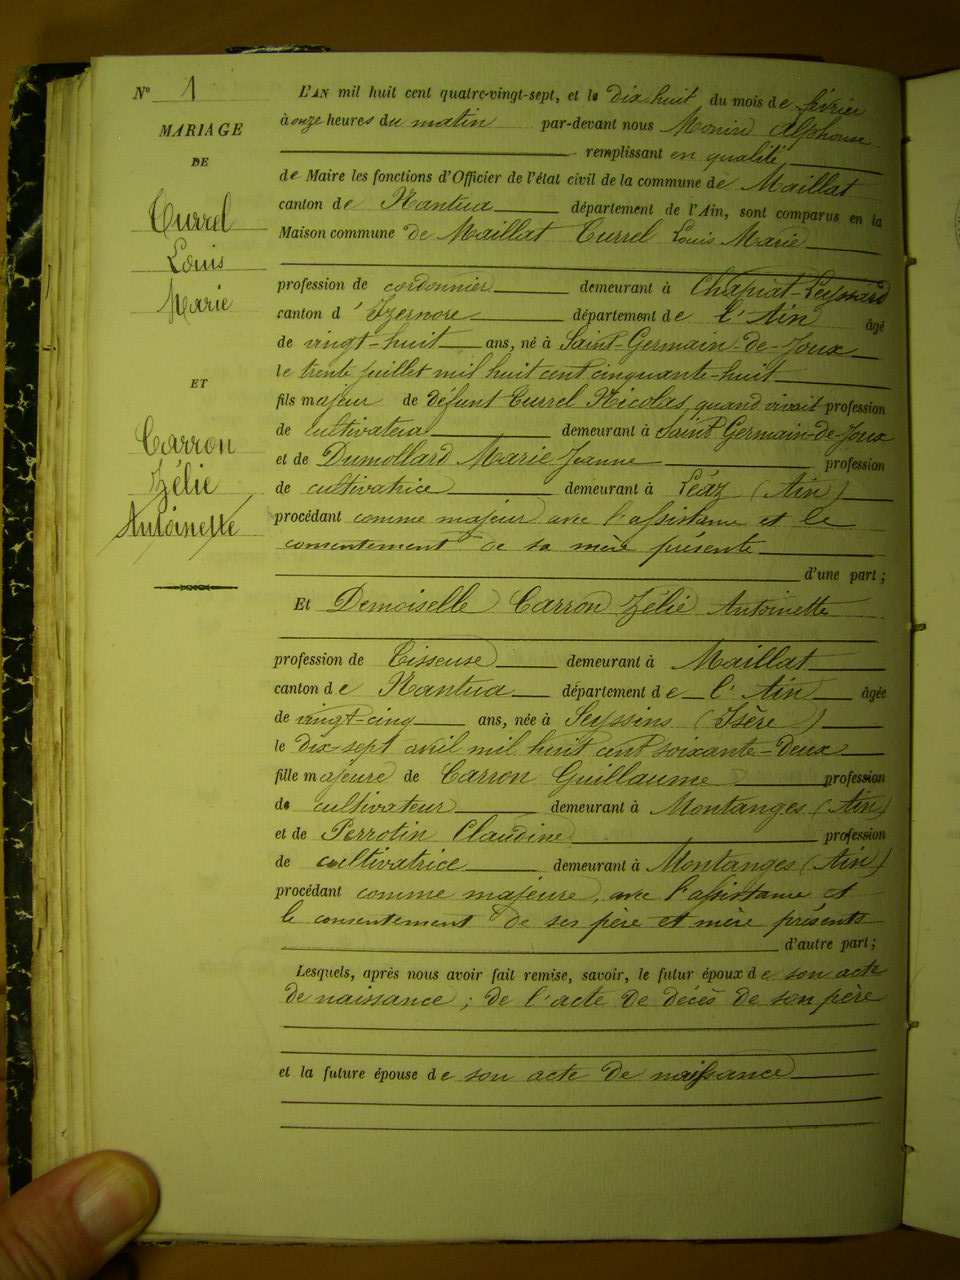 N° 1
MARIAGE
DE
Turrel
Louis
Marie
ET
Carron
Zélie
Antoinette
L'AN mil huit cent quatre-vingt-sept, et le dix huit du mois de février
à onze heures du matin par-devant nous Monin Alphonse
remplissant en qualité
de Maire les fonctions d'Officier de l'état civil de la commune de Maillat
canton de Nantua département de l'Ain, sont comparus en la
Maison commune de Maillat Turrel Louis Marie
profession de cordonnier demeurant à Chapiat-Leyssard
canton d'Izernore département de l'Ain âgé
de vingt-huit ans, né à Saint-Germain-de-Joux
le trente juillet mil huit cent cinquante-huit
fils majeur de défunt Turrel Nicolas, quand vivait profession
de cultivateur demeurant à Saint Germain-de-Joux
et de Dumollard Marie Jeanne profession
de cultivatrice demeurant à Léaz (Ain)
procédant comme majeur avec l'assistance et le
consentement de sa mère présente
d'une part ;
Et Demoiselle Carron Zélie Antoinette
profession de Tisseuse demeurant à Maillat
canton de Nantua département de l'Ain âgée
de vingt-cinq ans, née à Seyssins (Isère)
le dix sept avril mil huit cent soixante-deux
fille majeure de Carron Guillaume profession
de cultivateur demeurant à Montanges (Ain)
et de Perrotin Claudine profession
de cultivatrice demeurant à Montanges (Ain)
procédant comme majeure, avec l'assistance et
le consentement de ses père et mère présents
d'autre part ;
Lesquels, après nous avoir fait remise, savoir, le futur époux de son acte
de naissance ; de l'acte de décès de son père
et la future épouse de son acte de naissance